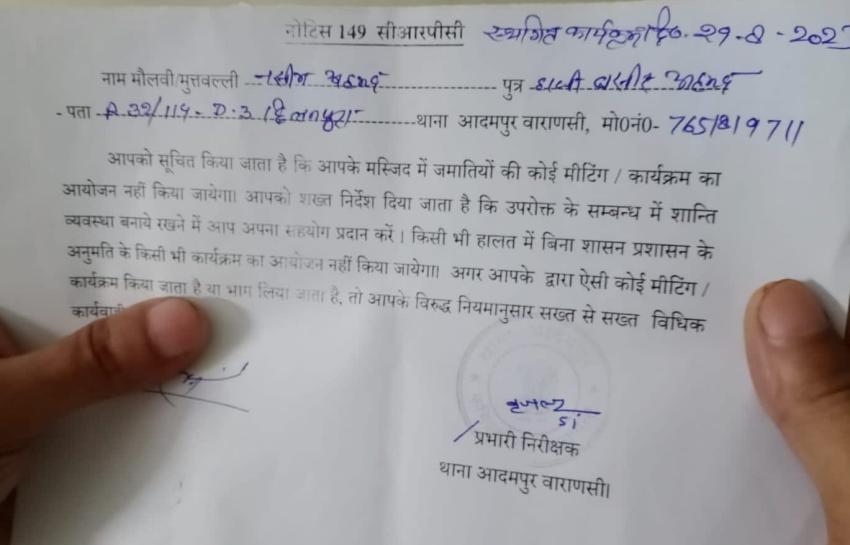 नोटिस 149 सीआरपीसी स्थगित कार्यक्रम दि0. 29-8-202
नाम मौलवी/मुत्तवल्ली नसीम अहमद पुत्र हाजी अहमद
- पता A 32/114- D-3 थाना आदमपुर वाराणसी, मो0नं0-
आपको सूचित किया जाता है कि आपके मस्जिद में जमातियों की कोई मीटिंग / कार्यक्रम का
आयोजन नहीं किया जायेगा। आपको शख्त निर्देश दिया जाता है कि उपरोक्त के सम्बन्ध में शान्ति
व्यवस्था बनाये रखने में आप अपना सहयोग प्रदान करें। किसी भी हालत में बिना शासन प्रशासन के
अनुमति के किसी भी कार्यक्रम का आयोजन नहीं किया जायेगा। अगर आपके द्वारा ऐसी कोई मीटिंग /
कार्यक्रम किया जाता है या भाग लिया जाता है, तो आपके विरुद्ध नियमानुसार सख्त से सख्त विधिक
SI
प्रभारी निरीक्षक
थाना आदमपुर वाराणसी।